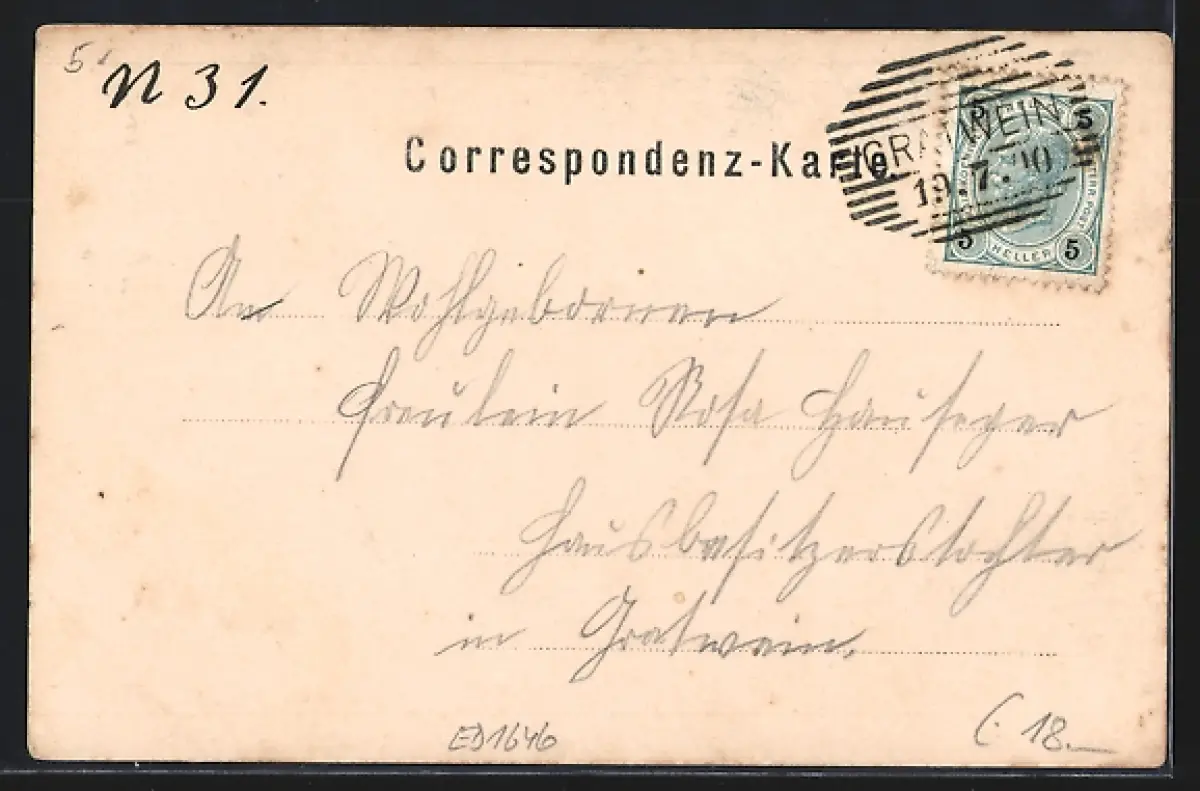 5
N 31.
Correspondenz-Karte.
GRATWEIN
19.7.00
5 5
5 5
HELLER
An Wohlgebornen
Fräulein Rosa Hauseger
Hausbesitzerstochter
in Gratwein.
ED1646
18.—